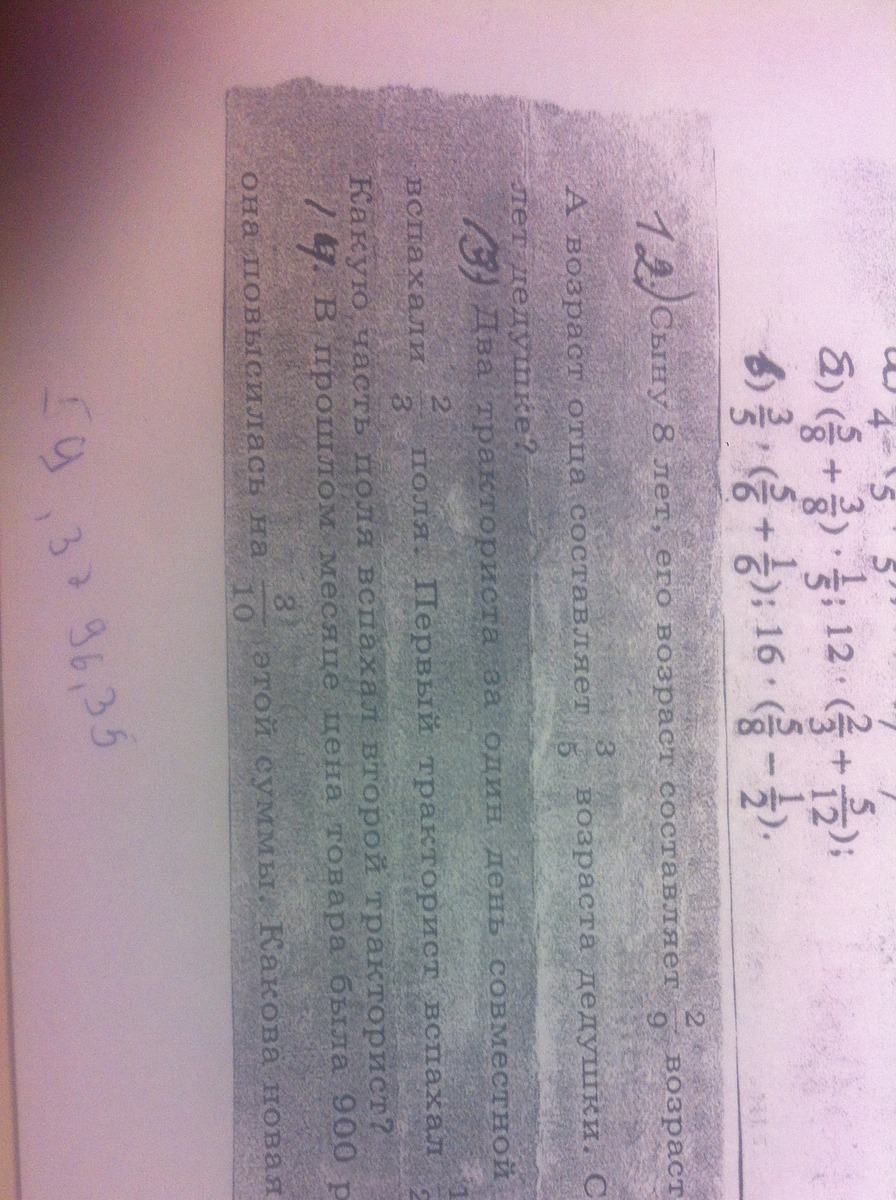 4
б) (5/8 + 3/8) · 1/5; 12 · (2/3 + 5/12);
в) 3/5 · (5/6 + 1/6); 16 · (5/8 − 1/2).
12) Сыну 8 лет, его возраст составляет 2/9 возраст
А возраст отца составляет 3/5 возраста дедушки. С
лет дедушке?
13) Два тракториста за один день совместной
вспахали 2/3 поля. Первый тракторист вспахал 1/2
Какую часть поля вспахал второй тракторист?
14. В прошлом месяце цена товара была 900 р
она повысилась на 3/10 этой суммы. Какова новая